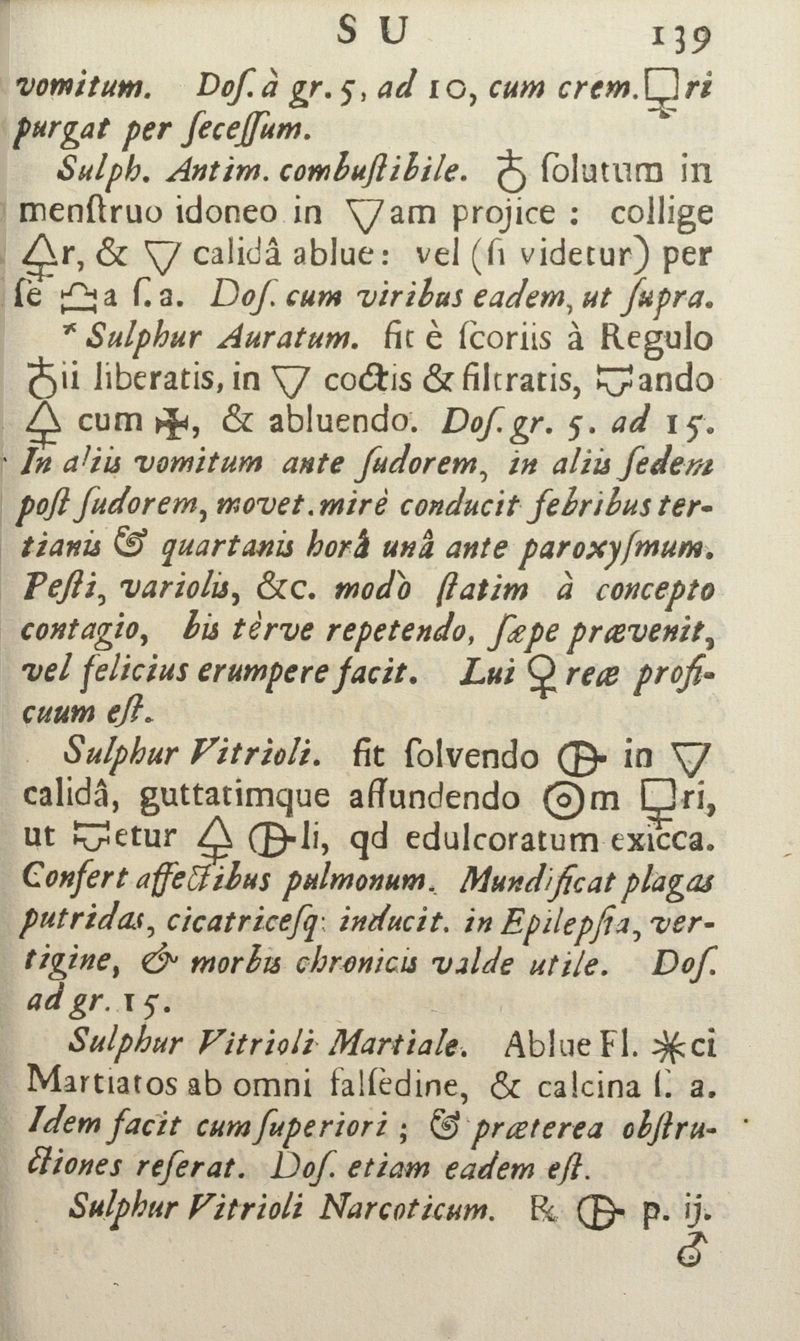 S U 139
vomitum. Doſ. à gr. 5, ad 10, cum crem. 🜿ri
purgat per ſeceſſum.
Sulph. Antim. combuſtibile. ♁ ſolutum in
menſtruo idoneo in 🜄am projice : collige
🜍r, & 🜄 calidâ ablue: vel (ſi videtur) per
ſe a ſ. a. Doſ. cum viribus eadem, ut ſupra.
* Sulphur Auratum. fit è ſcoriis à Regulo
♁ii liberatis, in 🜄 coctis & filtratis, ando
🜍 cum , & abluendo. Doſ. gr. 5. ad 15.
In aliis vomitum ante ſudorem, in aliis ſedem
poſt ſudorem, movet. mirè conducit febribus ter-
tianis & quartanis horâ unâ ante paroxyſmum.
Peſti, variolis, &c. modò ſtatim à concepto
contagio, bis tèrve repetendo, ſæpe prævenit,
vel felicius erumpere facit. Lui ♀reæ profi-
cuum eſt.
Sulphur Vitrioli. fit ſolvendo 🜖 in 🜄
calidâ, guttatimque affundendo m 🜿ri,
ut etur 🜍 🜖li, qd edulcoratum exicca.
Confert affectibus pulmonum. Mundificat plagas
putridas, cicatriceſq: inducit. in Epilepſia, ver-
tigine, & morbis chronicis valde utile. Doſ.
ad gr. 15.
Sulphur Vitrioli Martiale. Ablue Fl. ✶ci
Martiatos ab omni ſalſèdine, & calcina ſ. a.
Idem facit cum ſuperiori ; & præterea obſtru-
ctiones reſerat. Doſ. etiam eadem eſt.
Sulphur Vitrioli Narcoticum. ℞ 🜖 p. ij.